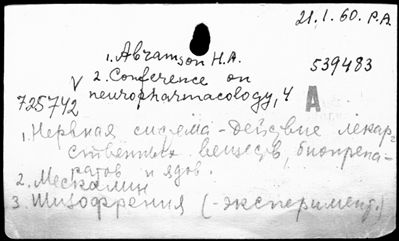 21.1.60. P.A.
1. Abramson H.A.
2. Conference on
neuropharmacology, 4
539483
V
A
725742
1. Нервная система - действие лекар-
ственных веществ, биопрепа-
ратов и ядов.
2. Мескалин
3. Шизофрения (-эксперимент.)